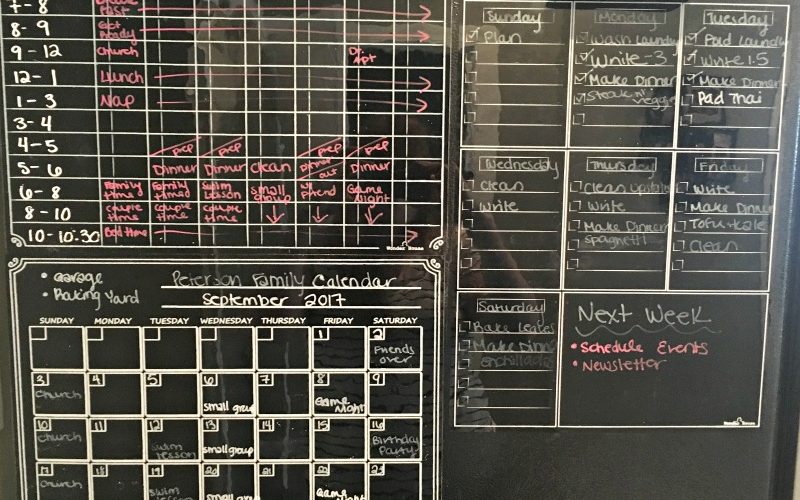 7-8
Past
8-9 Get Ready
9-12 Church Dr. Apt
12-1 Lunch
1-3 Nap
3-4
4-5 prep prep prep prep
5-6 Dinner Dinner Clean Dinner out Dinner
6-8 Family time Family time Swim Lesson small group w/ friend Game Night
8-10 couple time couple time couple time
10-10:30 Bed time
Wonder House
• Garage
• Raking Yard
Peterson Family Calendar
September 2017
SUNDAY MONDAY TUESDAY WEDNESDAY THURSDAY FRIDAY SATURDAY
1 2
Friends over
3 4 5 6 7 8 9
Church small group Game Night
10 11 12 13 14 15 16
Church Swim Lesson small group Birthday Party
17 18 19 20 21 22 23
Church Swim Lesson small group Game Night
Sunday
Plan
Monday
Wash Laundry
Write -3
Make Dinner
Steak n' veggie
Tuesday
Fold Laundry
Write 1.5
Make Dinner
Pad Thai
Wednesday
Clean
Write
Thursday
Clean Upstairs
Write
Make Dinner
Spaghetti
Friday
Write
Make Dinner
Tofu + kale
Clean
Saturday
Make Dinner
Enchiladas
Next Week
• Schedule Events
• Newsletter
Wonder House